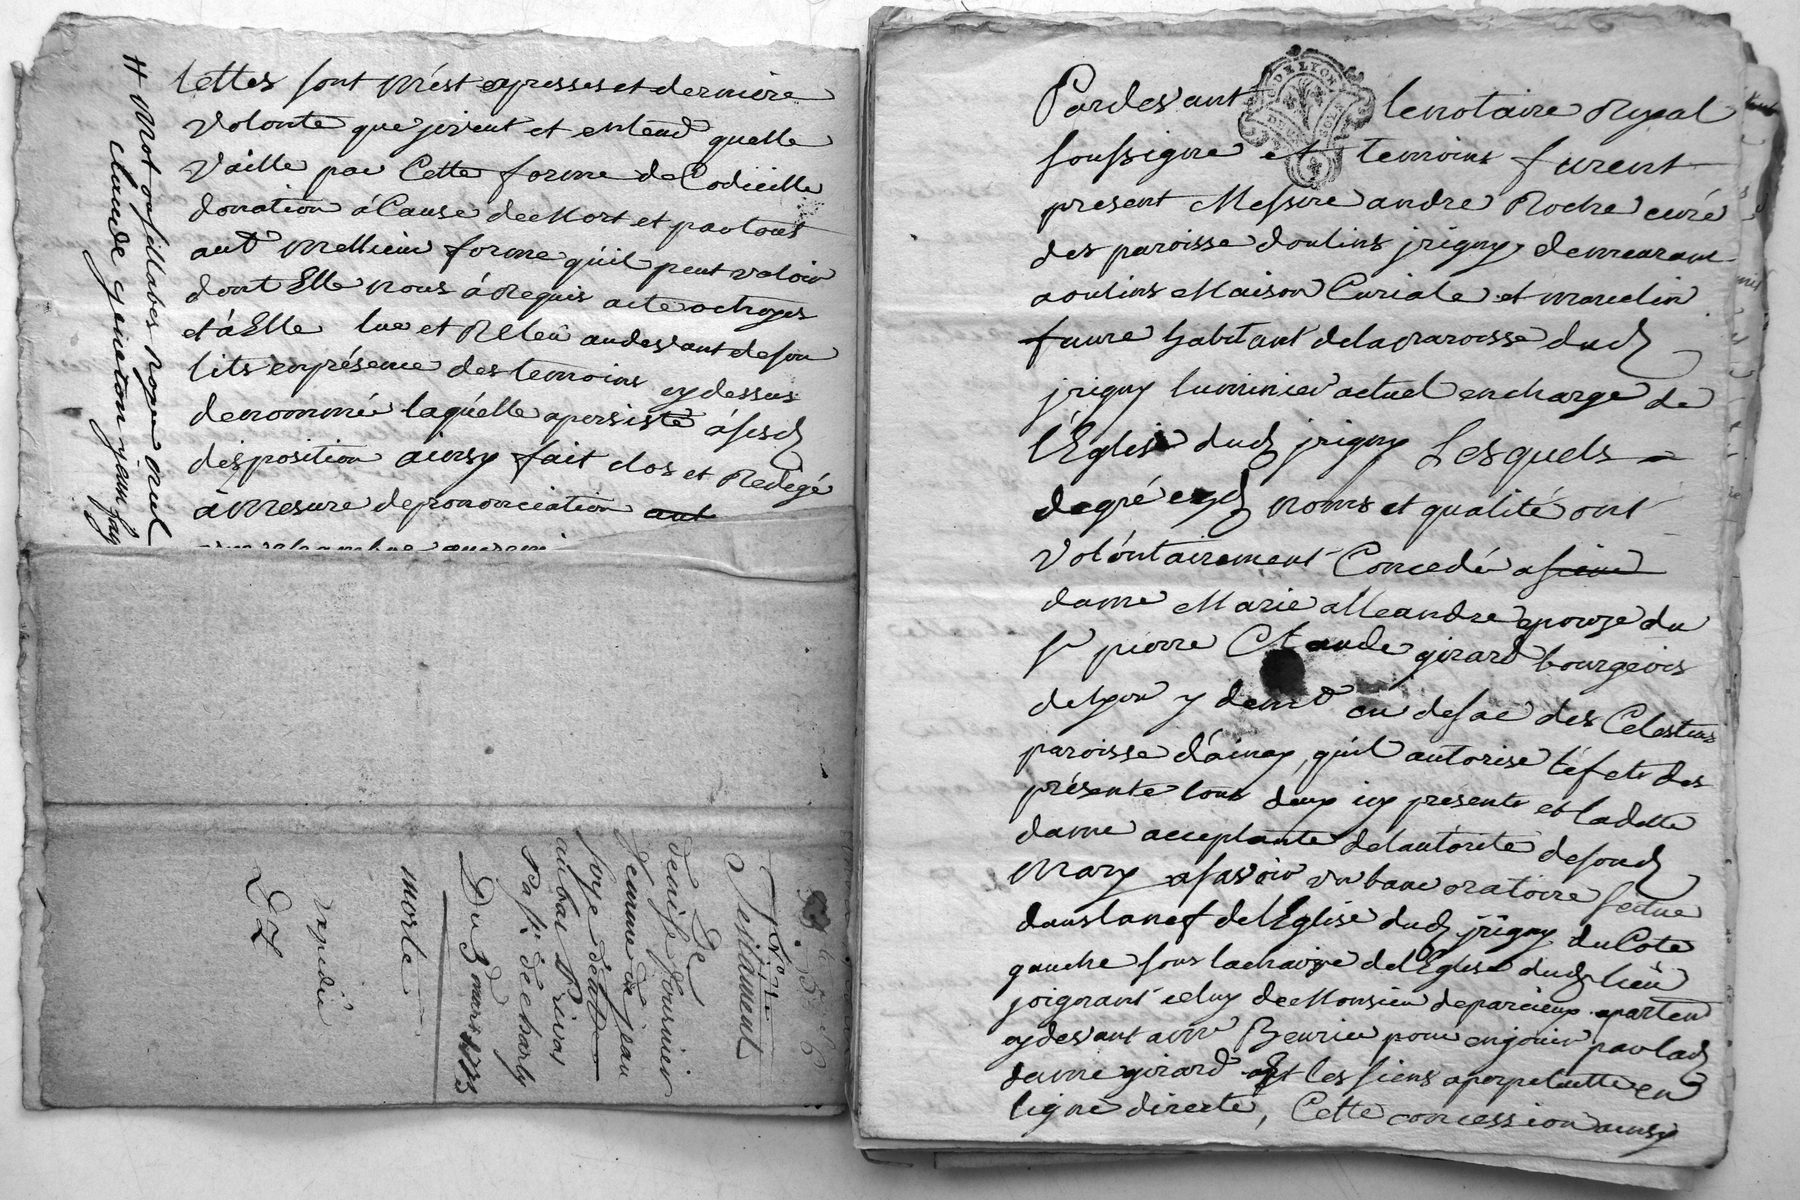 telles sont mest expresses et derniere
volonte que jirent et entend quelle
vaille par Cette forme de Codicille
donation á Cause de Mort et par tout
autᵉ mellieur forme quil peut valoir
dont Elle nous á Requis acte octroyes
et á Elle lue et Releu audevant de son
lits en présence des temoins cy dessus
denommé laquelle a persisté á sesd
disposition ainsy fait clos et Redigé
á mesure de prononciation
# mot ou sillabes Rayé nul
claude
Testament
De
fournier
femme de jean
au bas Privas
Parsse de charly
Du 3 mars 1773
morte
expedié
Pardevant le notaire Royal
soussigne et temoins furent
present Messire andre Roche curé
des paroisse doulins jrigny demeurant
a oulins Maison Curiale et
faure habitant de la paroisse dud
jrigny luminier actuel en charge de
l'Eglise dud jrigny Lesquels
de gré esd noms et qualité ont
volontairement Concedé a
dame Marie alleandre epouze du
sr pierre Claude girard bourgeois
de Lyon y demt des Celestins
paroisse d'ainay, quil autorise l'éfet des
présente tous deux icy present et ladette
dame acceptante de lautorité de sond
mary a savoir un banc oratoire scitue
dans la nef de l'Eglise dud jrigny du Cote
gauche sous la chaize de l'Eglise dud lieu
joignant celuy de Monsieur deparcieux aparten
cy devant a mr Beurier pour en jouir par lad
dame girard et les siens a perpetuitte en
ligne directe, Cette concession ainsy
DE LYON